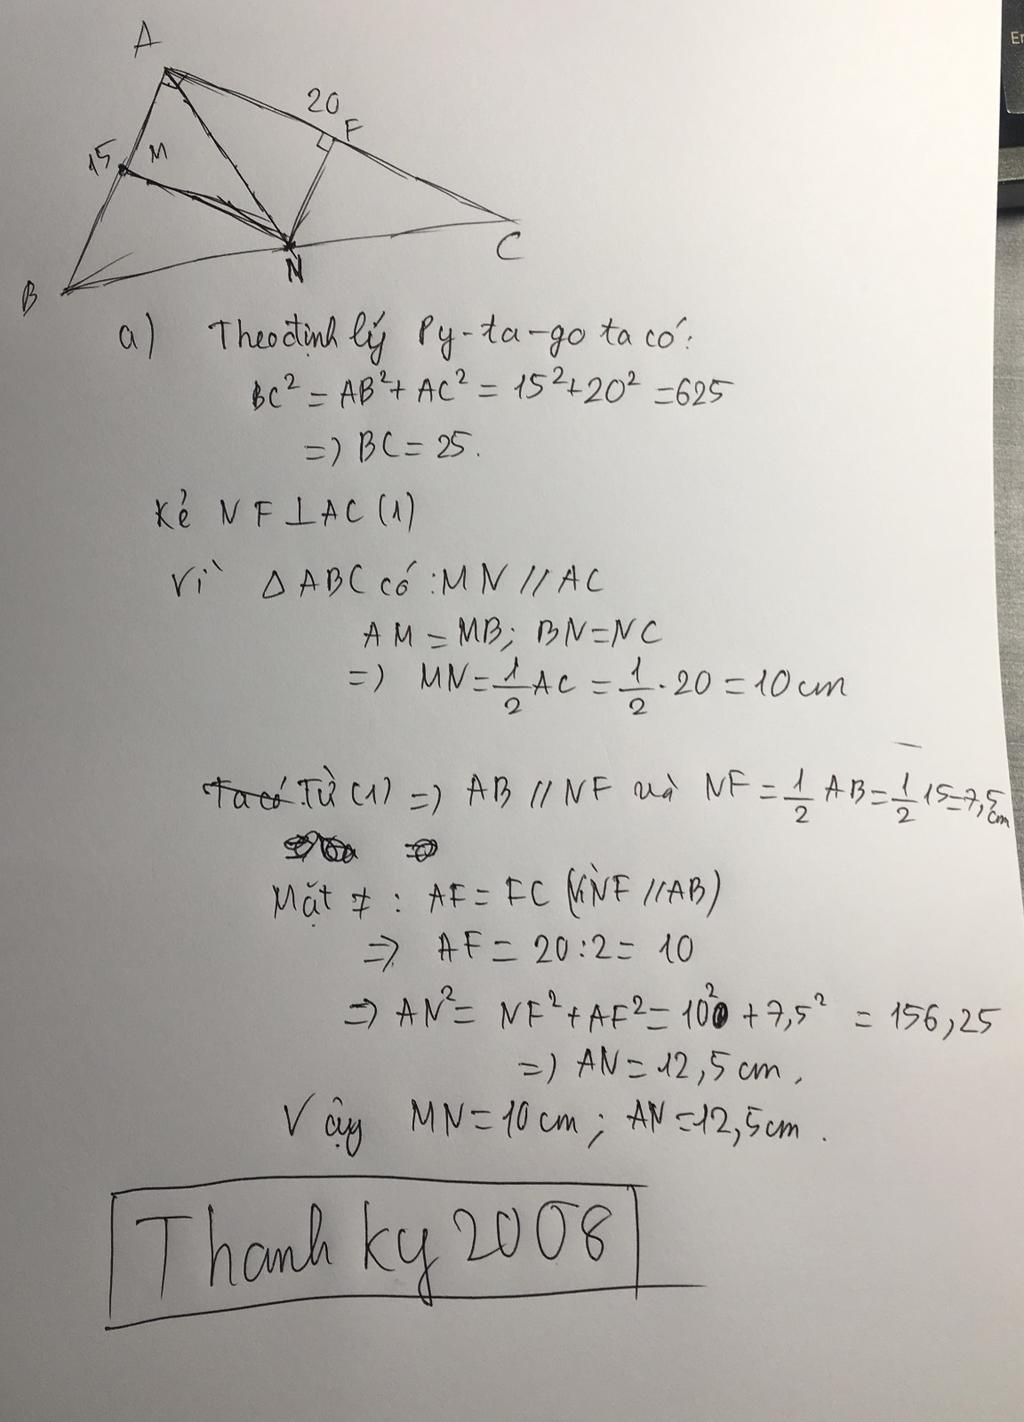 A
20
F
15
M
N
C
B
a) Theo định lý Py-ta-go ta có:
BC² = AB² + AC² = 15² + 20² = 625
=> BC = 25.
Kẻ NF ⊥ AC (1)
Vì △ ABC có: MN // AC
AM = MB; BN = NC
=> MN = 1/2 AC = 1/2 · 20 = 10 cm
Ta có Từ (1) => AB // NF và NF = 1/2 AB = 1/2 15 = 7,5 cm
Mặt ≠ : AF = FC (Vì NF // AB)
=> AF = 20 : 2 = 10
=> AN² = NF² + AF² = 10² + 7,5² = 156,25
=> AN = 12,5 cm.
Vậy MN = 10 cm; AN = 12,5 cm.
Thanh ky 2008